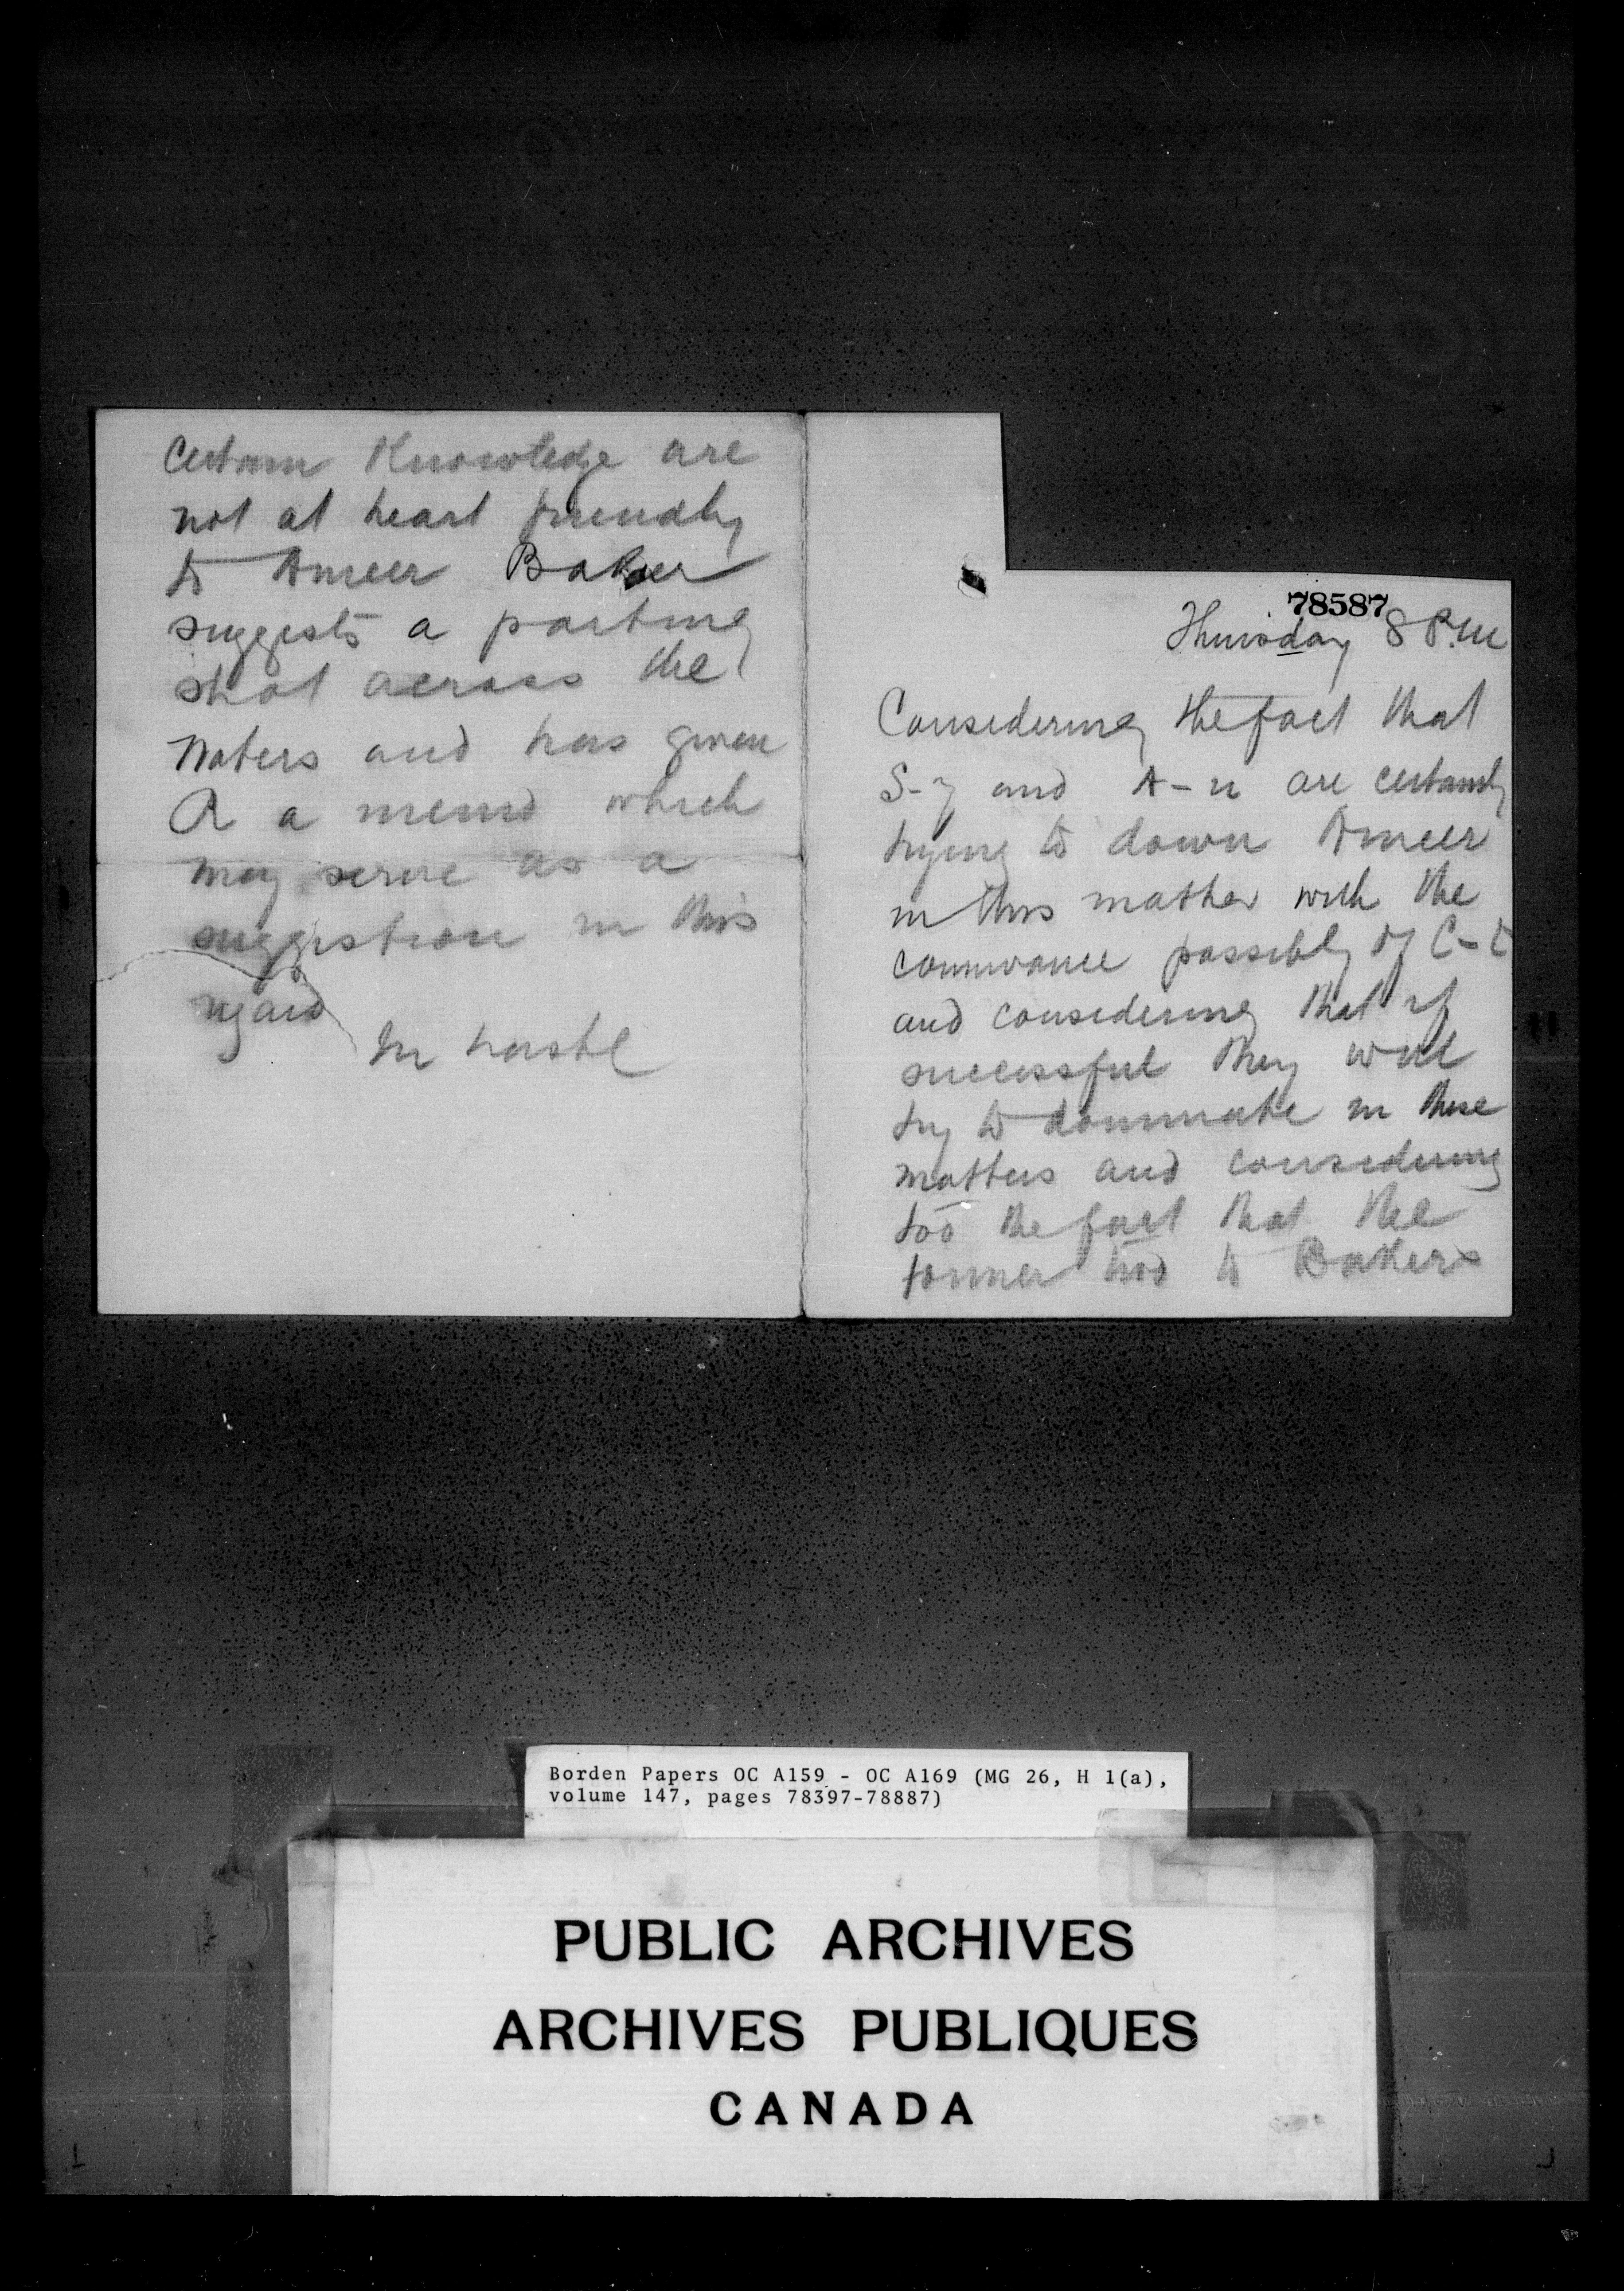 78587
Thursday 8 P.M
Considering the fact that
S-y and A-n are certainly
trying to down Ameer
in this matter with the
connivance possibly of C-t
and considering that if
successful they will
try to dominate in these
matters and considering
too the fact that the
former two to Bakers
certain Knowledge are
not at heart friendly
to Ameer Baker
suggests a parting
shot across the
waters and has given
R a memo which
may serve as a
suggestion in this
regard
In haste
Borden Papers OC A159 - OC A169 (MG 26, H 1(a),
volume 147, pages 78397-78887)
PUBLIC ARCHIVES
ARCHIVES PUBLIQUES
CANADA